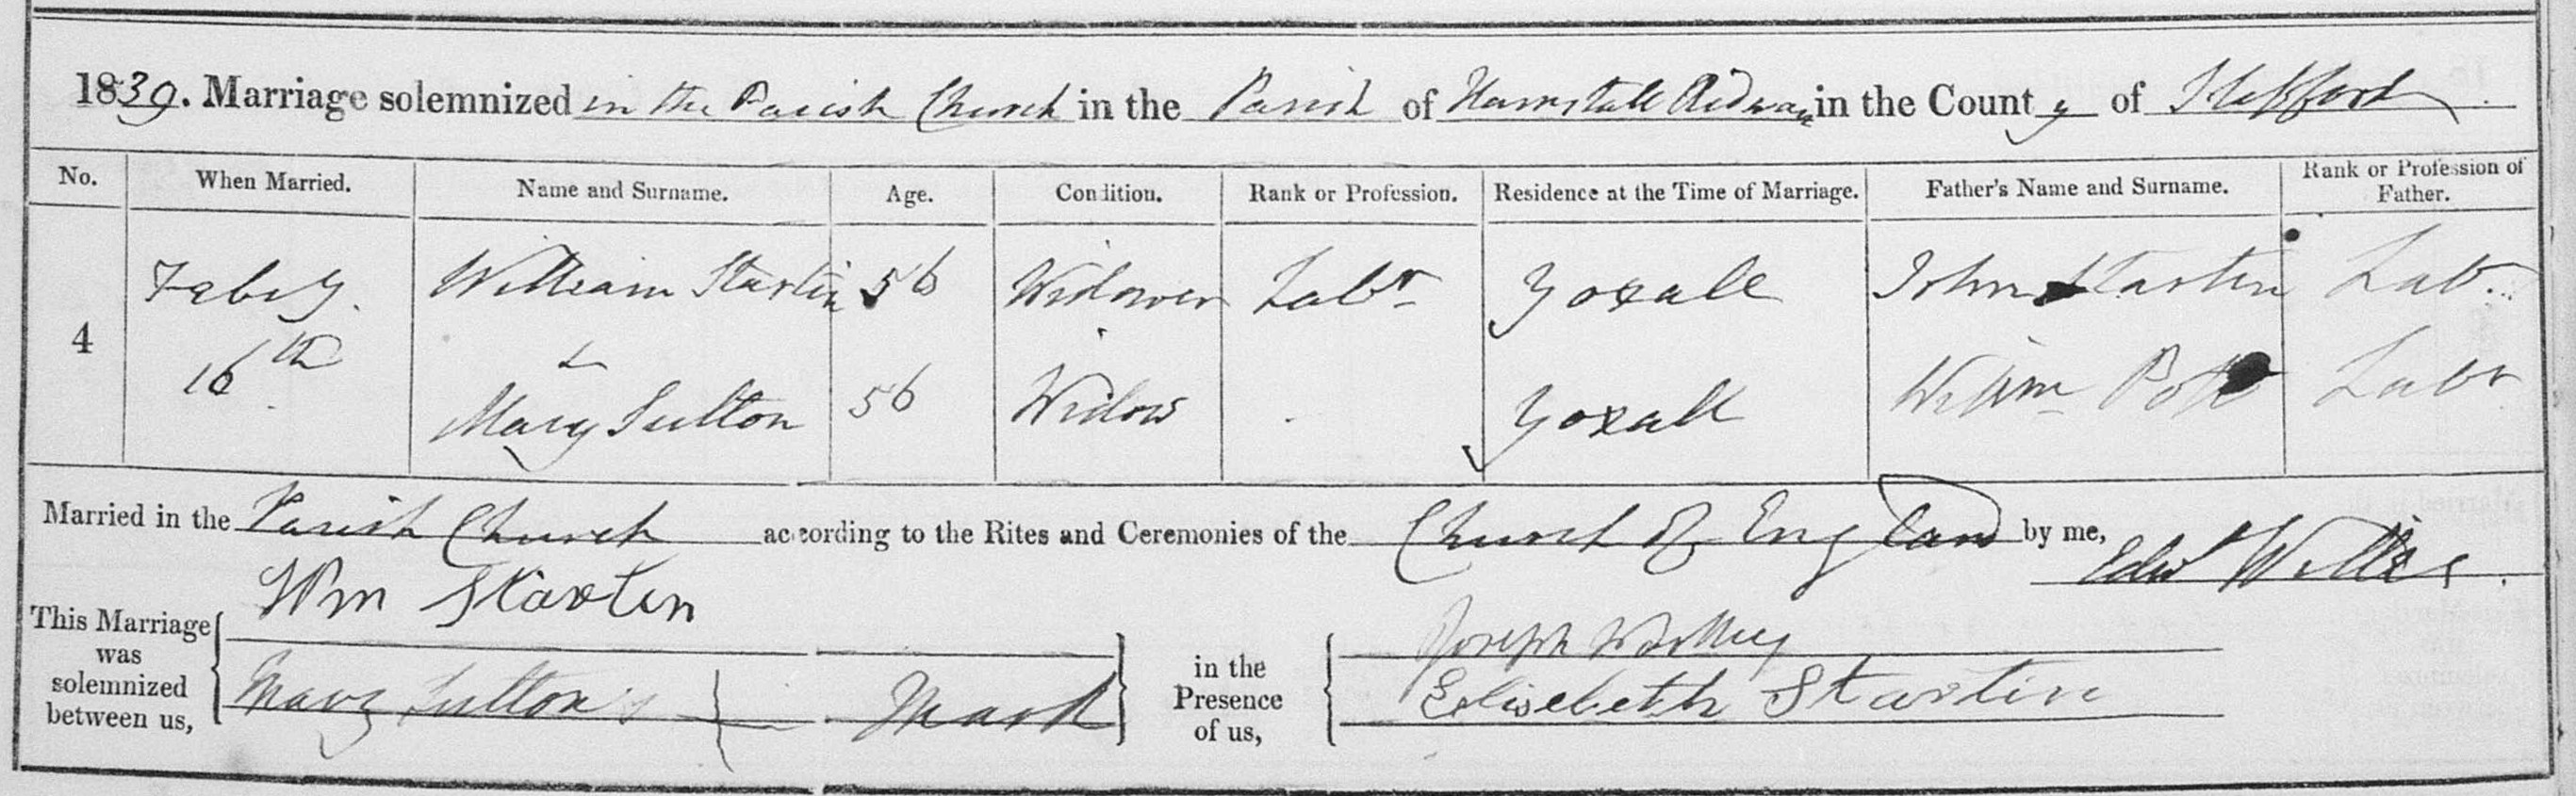 1839. Marriage solemnized in the Parish Church in the Parish of Hamstall Ridware in the County of Stafford
No. When Married. Name and Surname. Age. Condition. Rank or Profession. Residence at the Time of Marriage. Father's Name and Surname. Rank or Profession of Father.
4 Feby 16th William Startin 56 Widower Labr Yoxall John Startin Labr
& Mary Sutton 56 Widow Yoxall Willm Labr
Married in the Parish Church according to the Rites and Ceremonies of the Church of England by me, Edwd Willis
This Marriage was solemnized between us, Wm Startin
Mary Sutton's Mark
in the Presence of us, Joseph
Elisebeth Startin